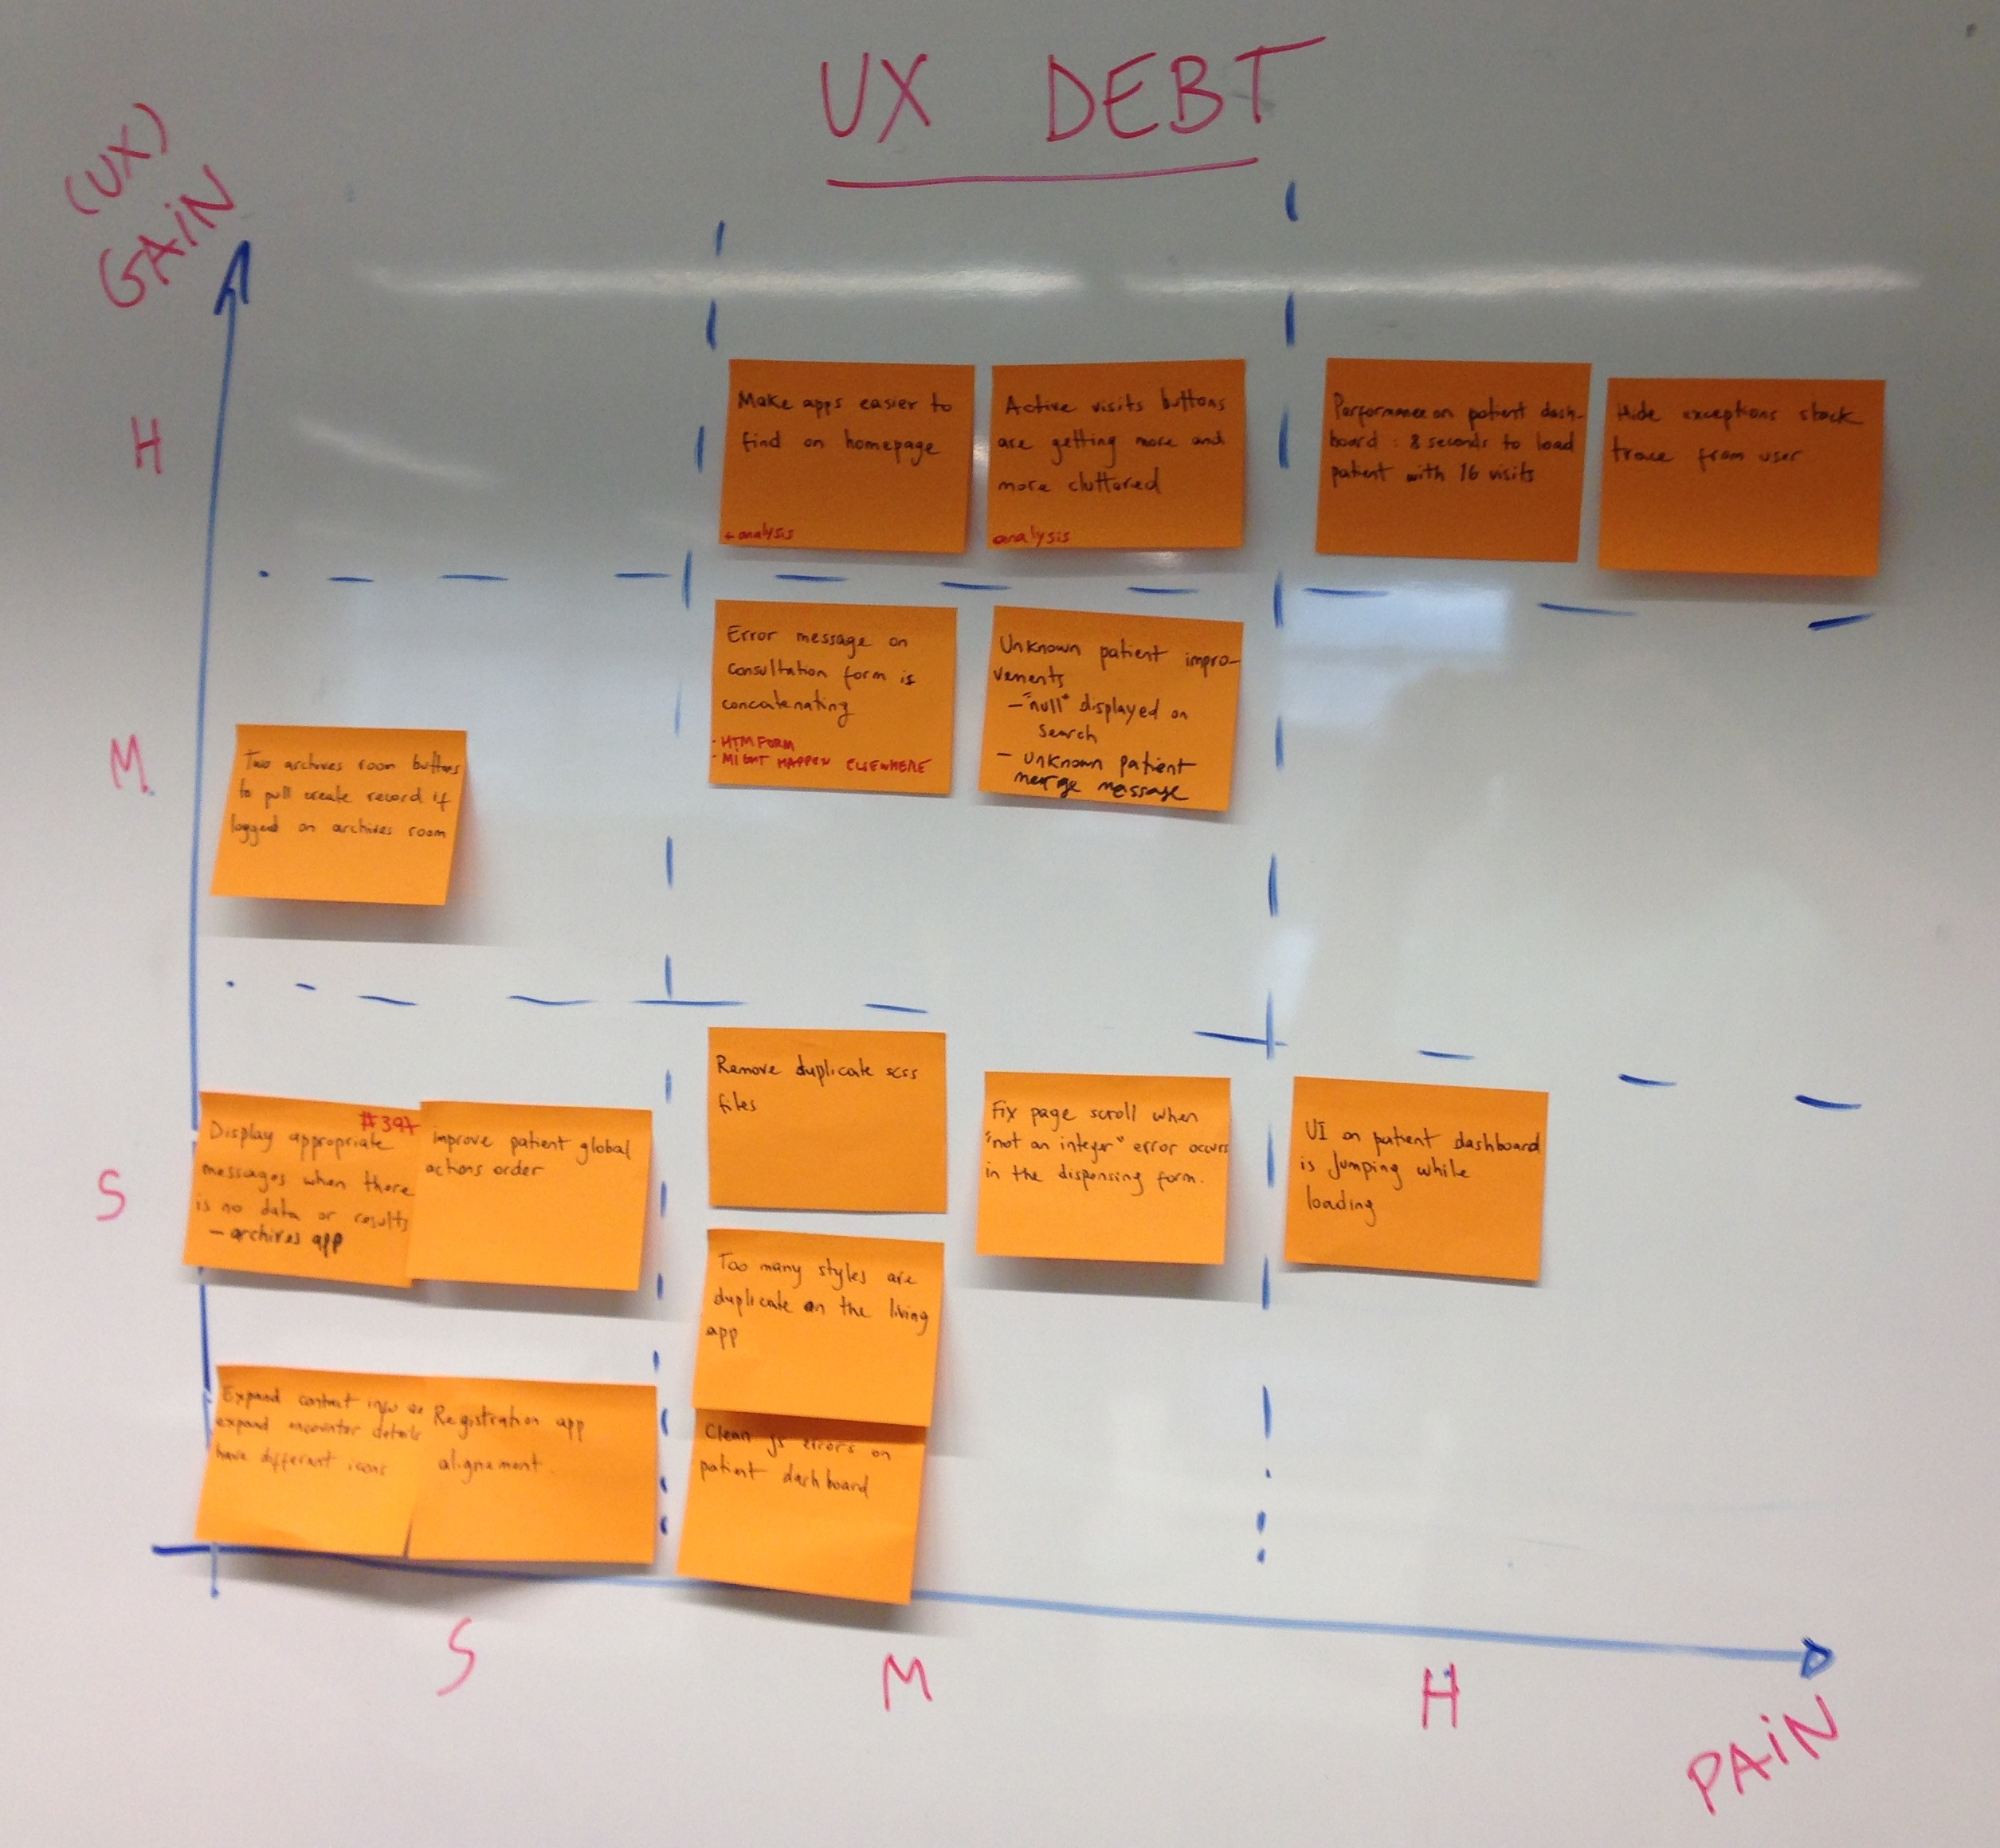 UX DEBT
(UX)
GAIN
H
Make apps easier to
find on homepage
+ analysis
Active visits buttons
are getting more and
more cluttered
analysis
Performance on patient dash-
board : 8 seconds to load
patient with 16 visits
Hide exceptions stack
trace from user
M
Two archives room buttons
to pull create record if
logged on archives room
Error message on
consultation form is
concatenating
- HTMFORM
- MIGHT HAPPEN ELSEWHERE
Unknown patient impro-
vements
- "null" displayed on
search
- unknown patient
merge message
S
Display appropriate
#397
messages when there
is no data or results
- archives app
improve patient global
actions order
Remove duplicate scss
files
Fix page scroll when
"not an integer" error occurs
in the dispensing form.
UI on patient dashboard
is jumping while
loading
Too many styles are
duplicate on the living
app
Expand contact info
expand encounter details
have different icons
Registration app
alignement.
Clean js errors on
patient dashboard
S
M
H
PAIN